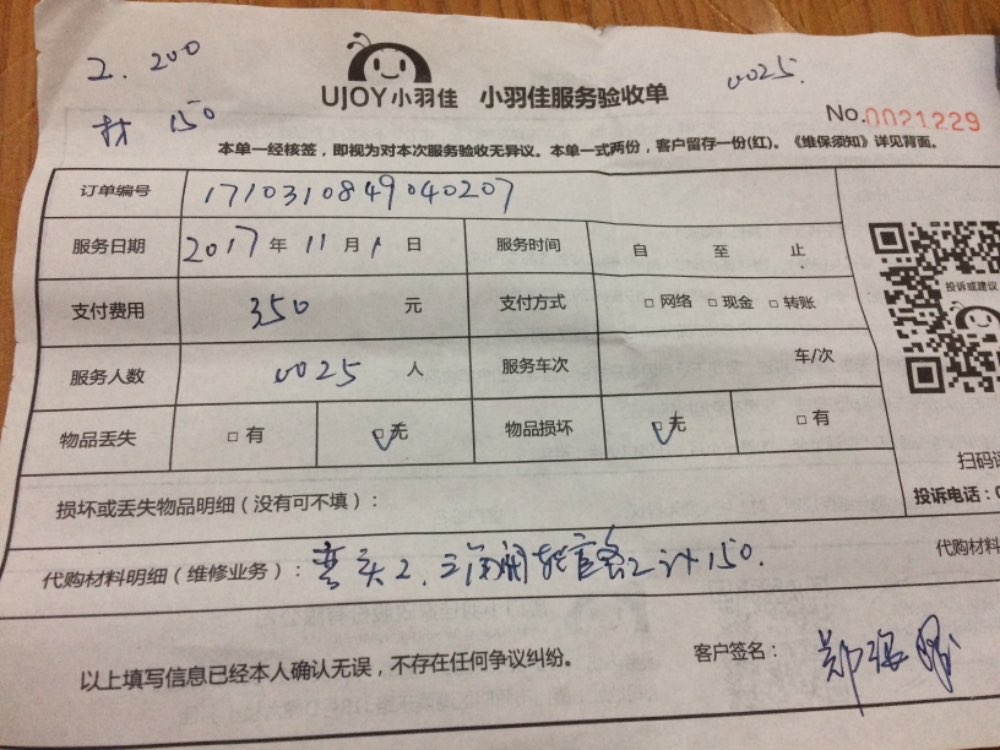 工. 200
材 150
UJOY小羽佳 小羽佳服务验收单
0025.
No.0021229
本单一经核签，即视为对本次服务验收无异议。本单一式两份，客户留存一份(红)。《维保须知》详见背面。
订单编号 1710310849040207
服务日期 2017年11月1日 服务时间 自 至 止
支付费用 350 元 支付方式 □网络 □现金 □转账
投诉或建议
服务人数 0025 人 服务车次 车/次
物品丢失 □有 □无 物品损坏 □无 □有
扫码
损坏或丢失物品明细（没有可不填）：
投诉电话：0
代购材料明细（维修业务）：弯头2.三角阀 2计150.
代购材料
以上填写信息已经本人确认无误，不存在任何争议纠纷。 客户签名：郑